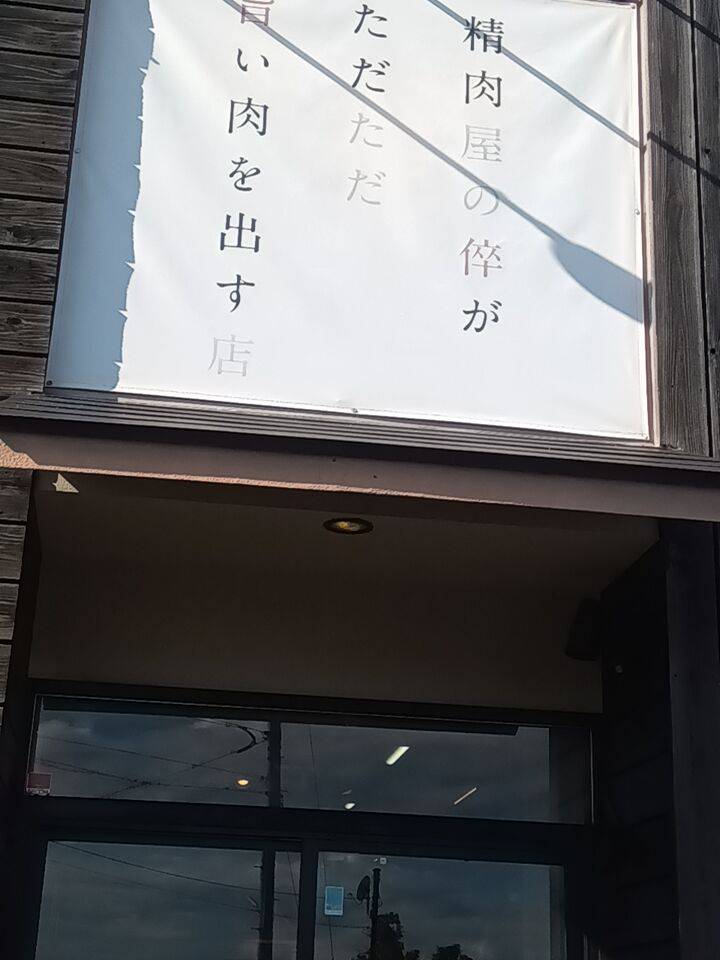 精肉屋の倅が
ただただ
旨い肉を出す店